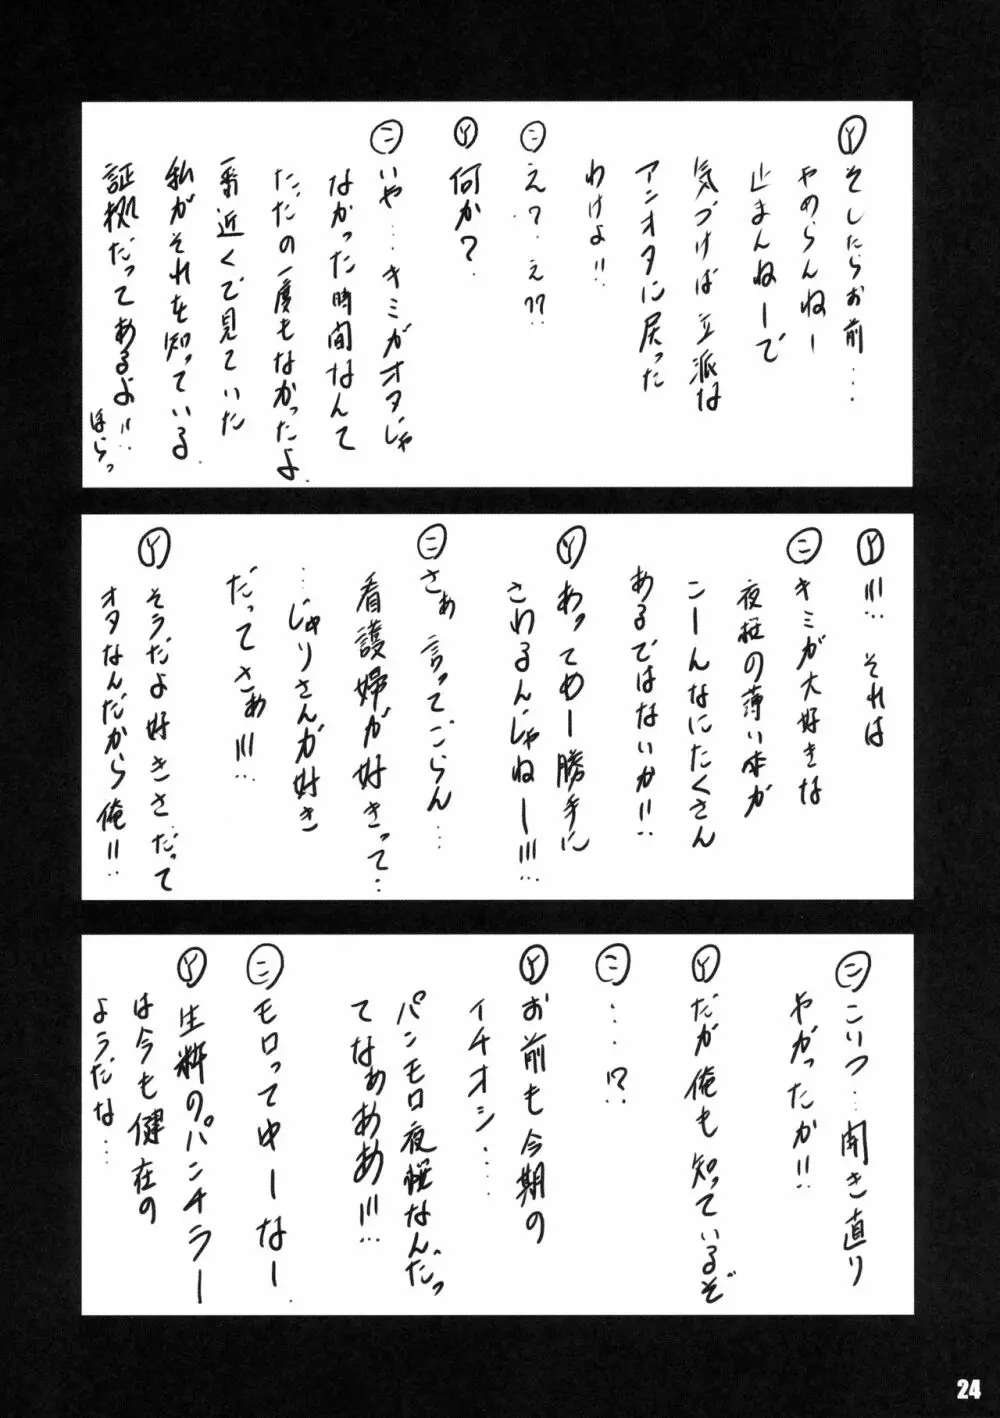 Ⓨ そしたらお前…
やめらんねー
止まんねーで
気づけば立派な
アンオタに戻った
わけよ!!
㊁ え?…え??
Ⓨ 何か?
㊁ いや…キミがオタじゃ
なかった時間なんて
ただの一度もなかったよ.
一番近くで見ていた
私がそれを知っている.
証拠だってあるよ!!…
ほらっ
Ⓨ !!!… それは
㊁ キミが大好きな
夜桜の薄い本が
こーんなにたくさん
あるではないか!!…
Ⓨ あってめー勝手に
さわるんじゃねー!!!…
㊁ さぁ 言ってごらん…
看護婦が好きって…
…じゅりさんが好き
だってさぁ!!!…
Ⓨ そうだよ好きさ…だって
オタなんだから俺!!…
㊁ こいつ…開き直り
やがったか!!…
Ⓨ だが俺も知っているぞ
㊁ ……!?
Ⓨ お前も今期の
イチオシ……
パンモロ夜桜なんだっ
てなぁぁああ!!!…
㊁ モロってゆーなー.
Ⓨ 生粋のパンチラー
は今も健在の
ようだな…
24